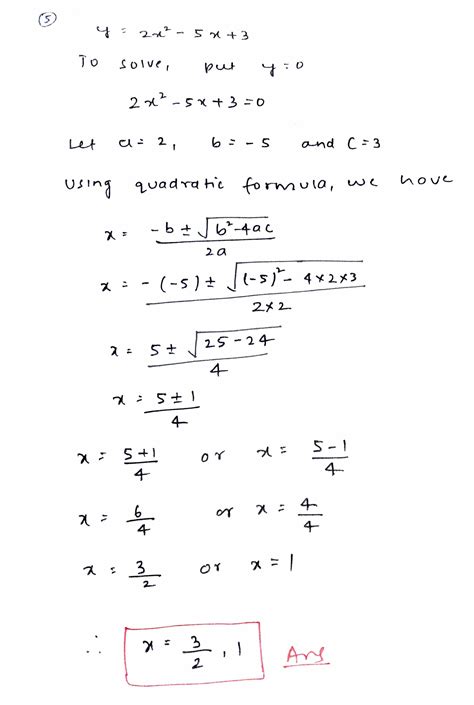 ⑤ y = 2x² - 5x + 3
To solve, put y = 0
2x² - 5x + 3 = 0
Let a = 2, b = - 5 and C = 3
Using quadratic formula, we have
x = (-b ± √(b² - 4ac)) / 2a
x = (-(-5) ± √((-5)² - 4×2×3)) / 2×2
x = (5 ± √(25 - 24)) / 4
x = (5 ± 1) / 4
x = (5+1)/4 or x = (5-1)/4
x = 6/4 or x = 4/4
x = 3/2 or x = 1
∴ x = 3/2, 1 Ans